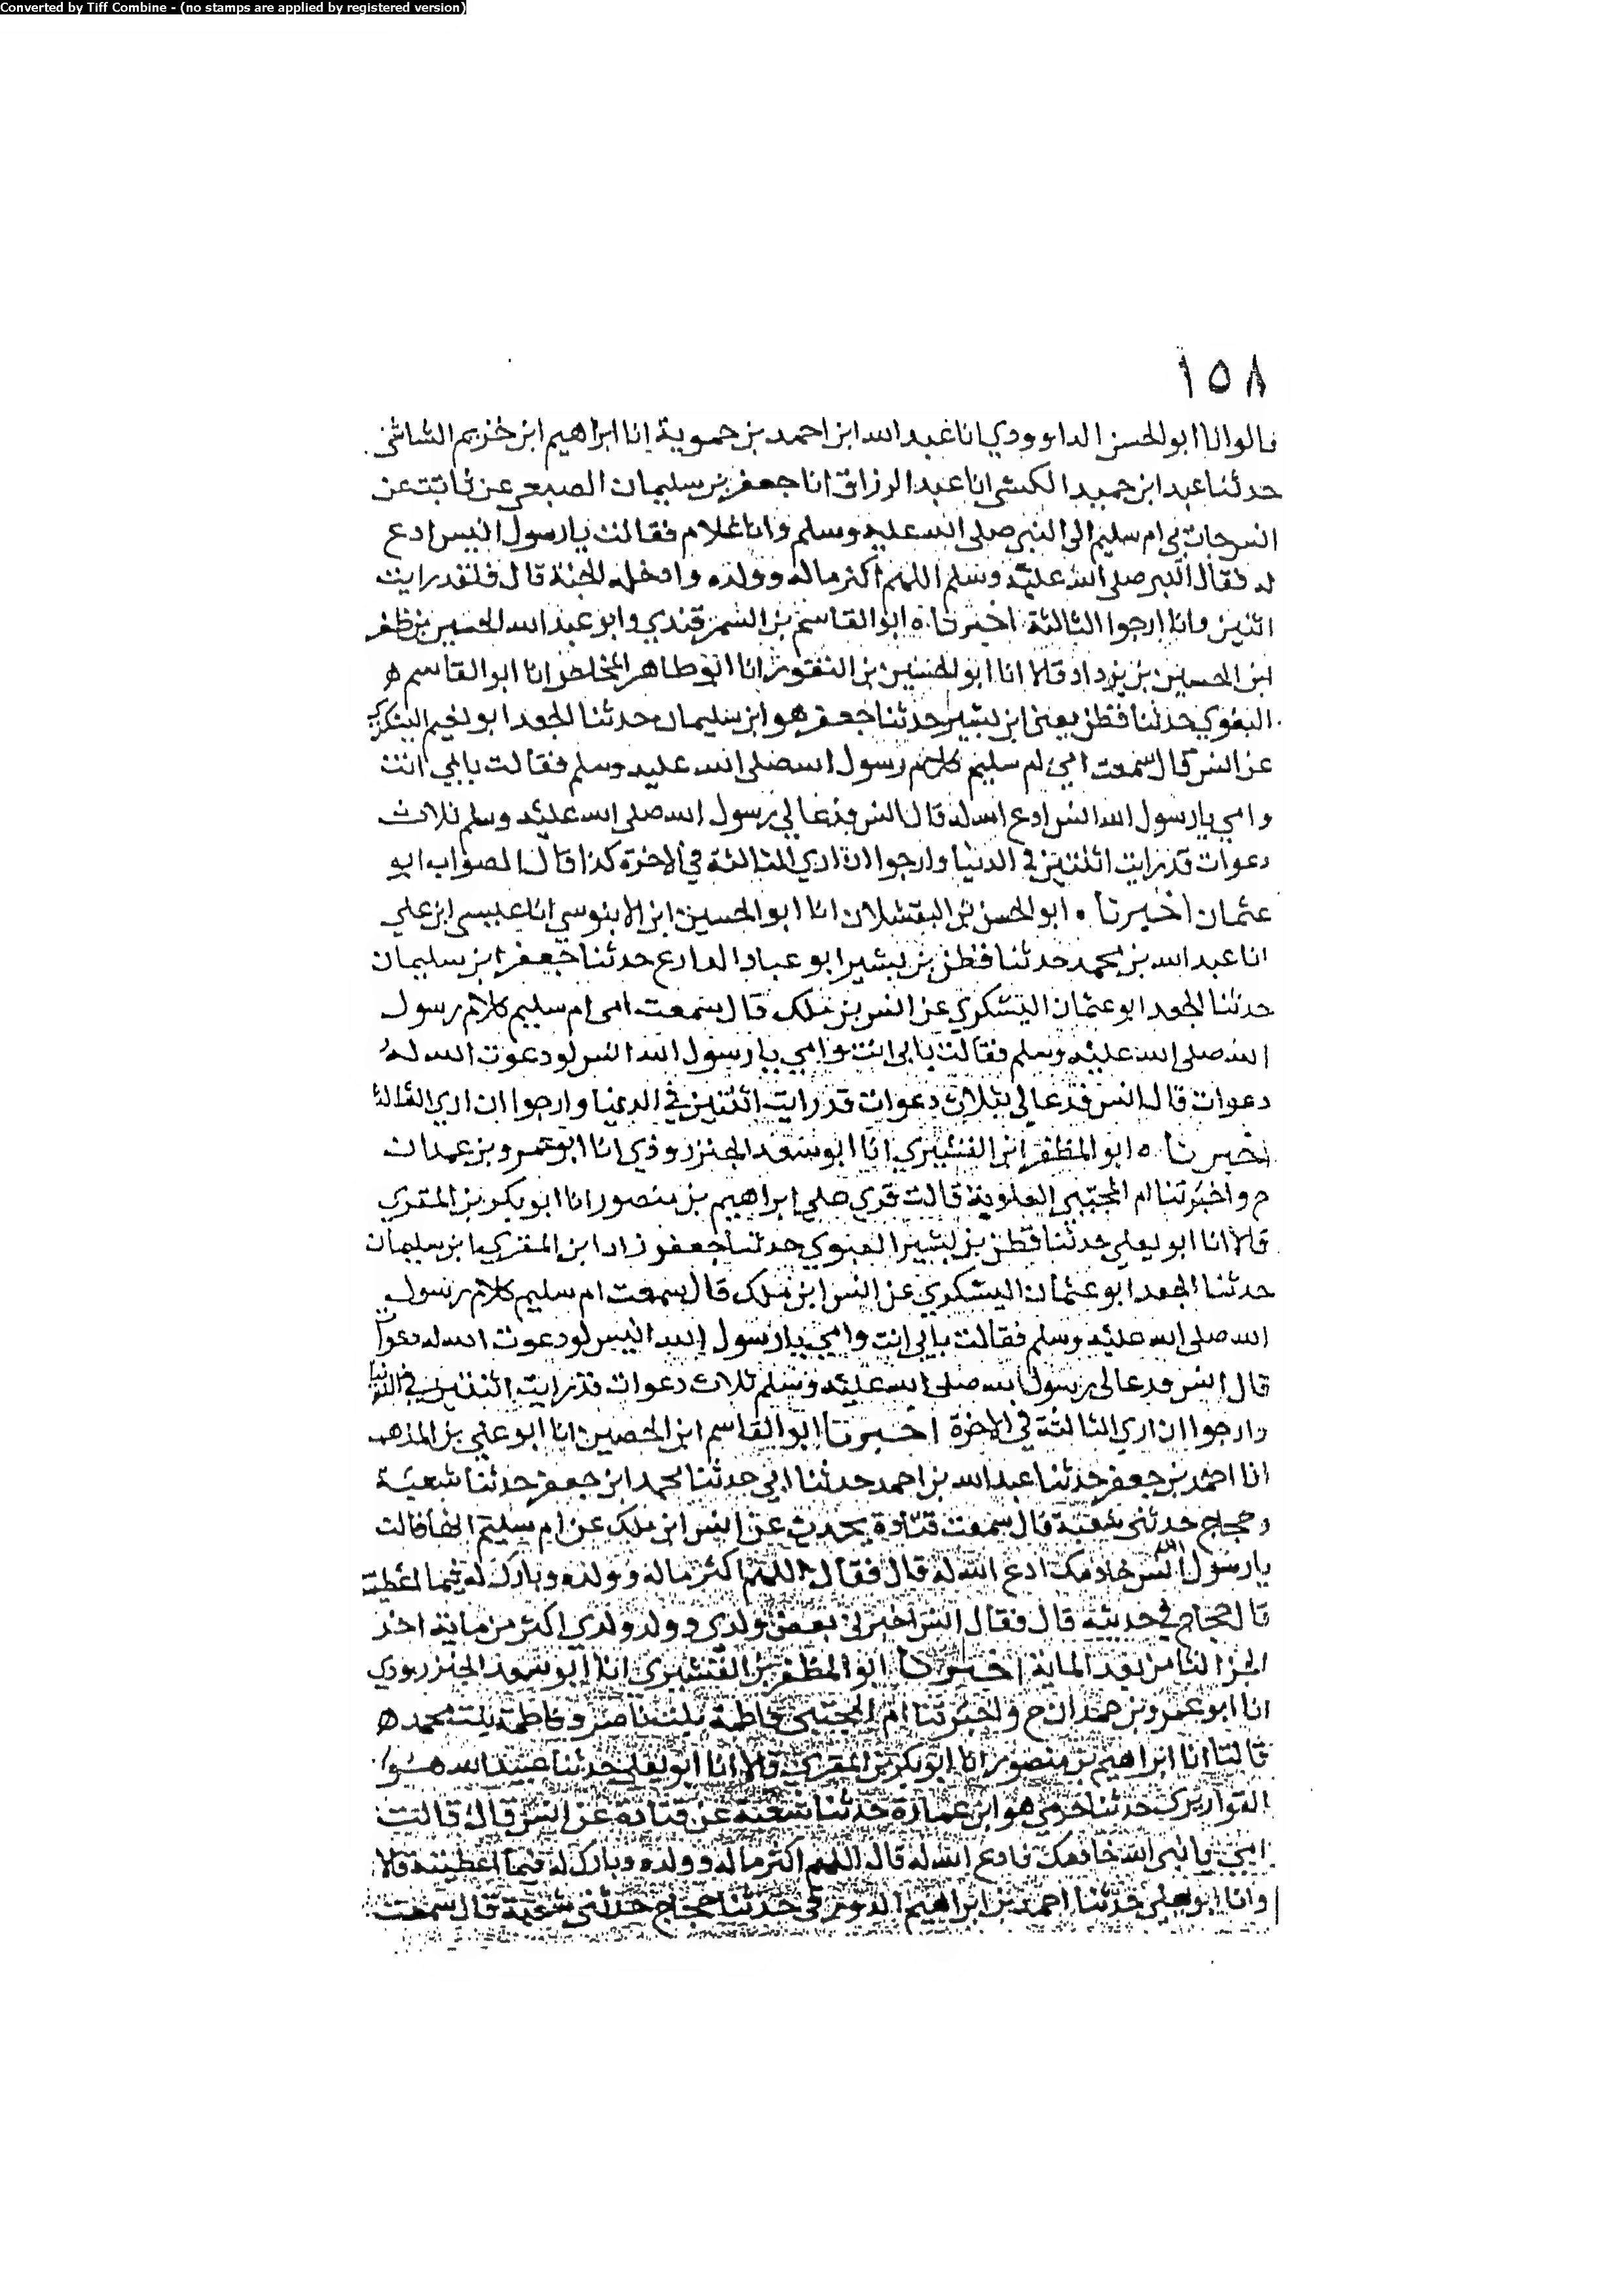 Converted by Tiff Combine - (no stamps are applied by registered version)
١٥٨
قالوا انا ابو الحسن الداوودي انا عبد الله ابن احمد بن حموية انا ابراهيم ابن خزيم الشاشي
حدثنا عبد ابن حميد الكشي انا عبد الرزاق انا جعفر بن سليمان الضبعي عن ثابت عن
انس جات بي ام سليم الى النبي صلى الله عليه وسلم وانا غلام فقالت يا رسول انيس ادع
له فقال النبي صلى الله عليه وسلم اللهم اكثر ماله وولده وادخله الجنة قال فلقد رايت
اثنين وانا ارجوا الثالثة اخبرنا ه ابو القاسم بن السمرقندي وابو عبد الله الحسين بن ظفر
ابن الحسين بن يزداد قالا انا ابو الحسين بن النقور انا ابو طاهر المخلص انا ابو القاسم ه
البغوي حدثنا قطن يعني ابن بشير حدثنا جعفر هو ابن سليمان حدثنا الجعد ابو نعيم اليشكري
عن انس قال سمعت امي ام سليم كلام رسول الله صلى الله عليه وسلم فقالت بابي انت
وامي يا رسول الله انس ادع الله له قال انس فدعا لي رسول الله صلى الله عليه وسلم ثلاث
دعوات قد رايت اثنتين في الدنيا وارجوا ان اري الثالثة في الاخرة كذا قال الصواب ابو
عثمان اخبرنا ه ابو الحسن بن البقشلان انا ابو الحسين ابن الابنوسي انا عيسى ابن علي
انا عبد الله بن محمد حدثنا قطن بن بشير ابو عباد الدارع حدثنا جعفر ابن سليمان
حدثنا الجعد ابو عثمان اليشكري عن انس بن ملك قال سمعت امي ام سليم كلام رسول
الله صلى الله عليه وسلم فقالت بابي انت وامي يا رسول الله انس لو دعوت الله له
دعوات قال انس فدعا لي بثلاث دعوات قد رايت اثنتين في الدنيا وارجوا ان اري الثالثة
اخبرنا ه ابو المظفر ابن القشيري انا ابو سعد الجنزروذي انا ابو عمرو بن حمدان
ح واخبرتنا ام المجتبى العلوية قالت قري علي ابراهيم بن منصور انا ابو بكر بن المقري
قالا انا ابو يعلي حدثنا قطن بن بشير الغنوي حدثنا جعفر زاد ابن المقري ابن سليمان
حدثنا الجعد ابو عثمان اليشكري عن انس ابن ملك قال سمعت ام سليم كلام رسول
الله صلى الله عليه وسلم فقالت بابي انت وامي يا رسول الله انيس لو دعوت الله له دعوات
قال انس فدعا لي رسول الله صلى الله عليه وسلم ثلاث دعوات قد رايت اثنتين في الدنيا
وارجوا ان اري الثالثة في الاخرة اخبرنا ابو القاسم ابن الحصين انا ابو علي بن المذهب
انا احمد بن جعفر حدثنا عبد الله بن احمد حدثنا ابي حدثنا محمد ابن جعفر حدثنا شعبة
وحجاج حدثني شعبة قال سمعت قتادة يحدث عن انس ابن ملك عن ام سليم انها قالت
يا رسول الله انس خادمك ادع الله له قال فقال اللهم اكثر ماله وولده وبارك له فيما اعطيته
قال حجاج في حديثه قال فقال انس اخبرني بعض ولدي وولد ولدي اكثر من ماية اخر
الجز الثامن بعد الماية اخبرنا ابو المظفر بن القشيري انا ابو سعد الجنزرودي
انا ابو عمرو بن حمدان ح واخبرتنا ام المجتبى فاطمة بنت ناصر وفاطمة بنت محمد ه
قالتا انا ابراهيم بن منصور انا ابو بكر بن المقري قالا انا ابو يعلي حدثنا عبيد الله هو
القواريري حدثنا حرمي هو ابن عمارة حدثنا شعبة عن قتادة عن انس قال قالت
امي يا نبي الله خادمك فادع الله له قال اللهم اكثر ماله وولده وبارك له فيما اعطيته قالا
وانا ابو يعلي حدثنا احمد بن ابراهيم الدورقي حدثنا حجاج حدثني شعبة قال سمعت